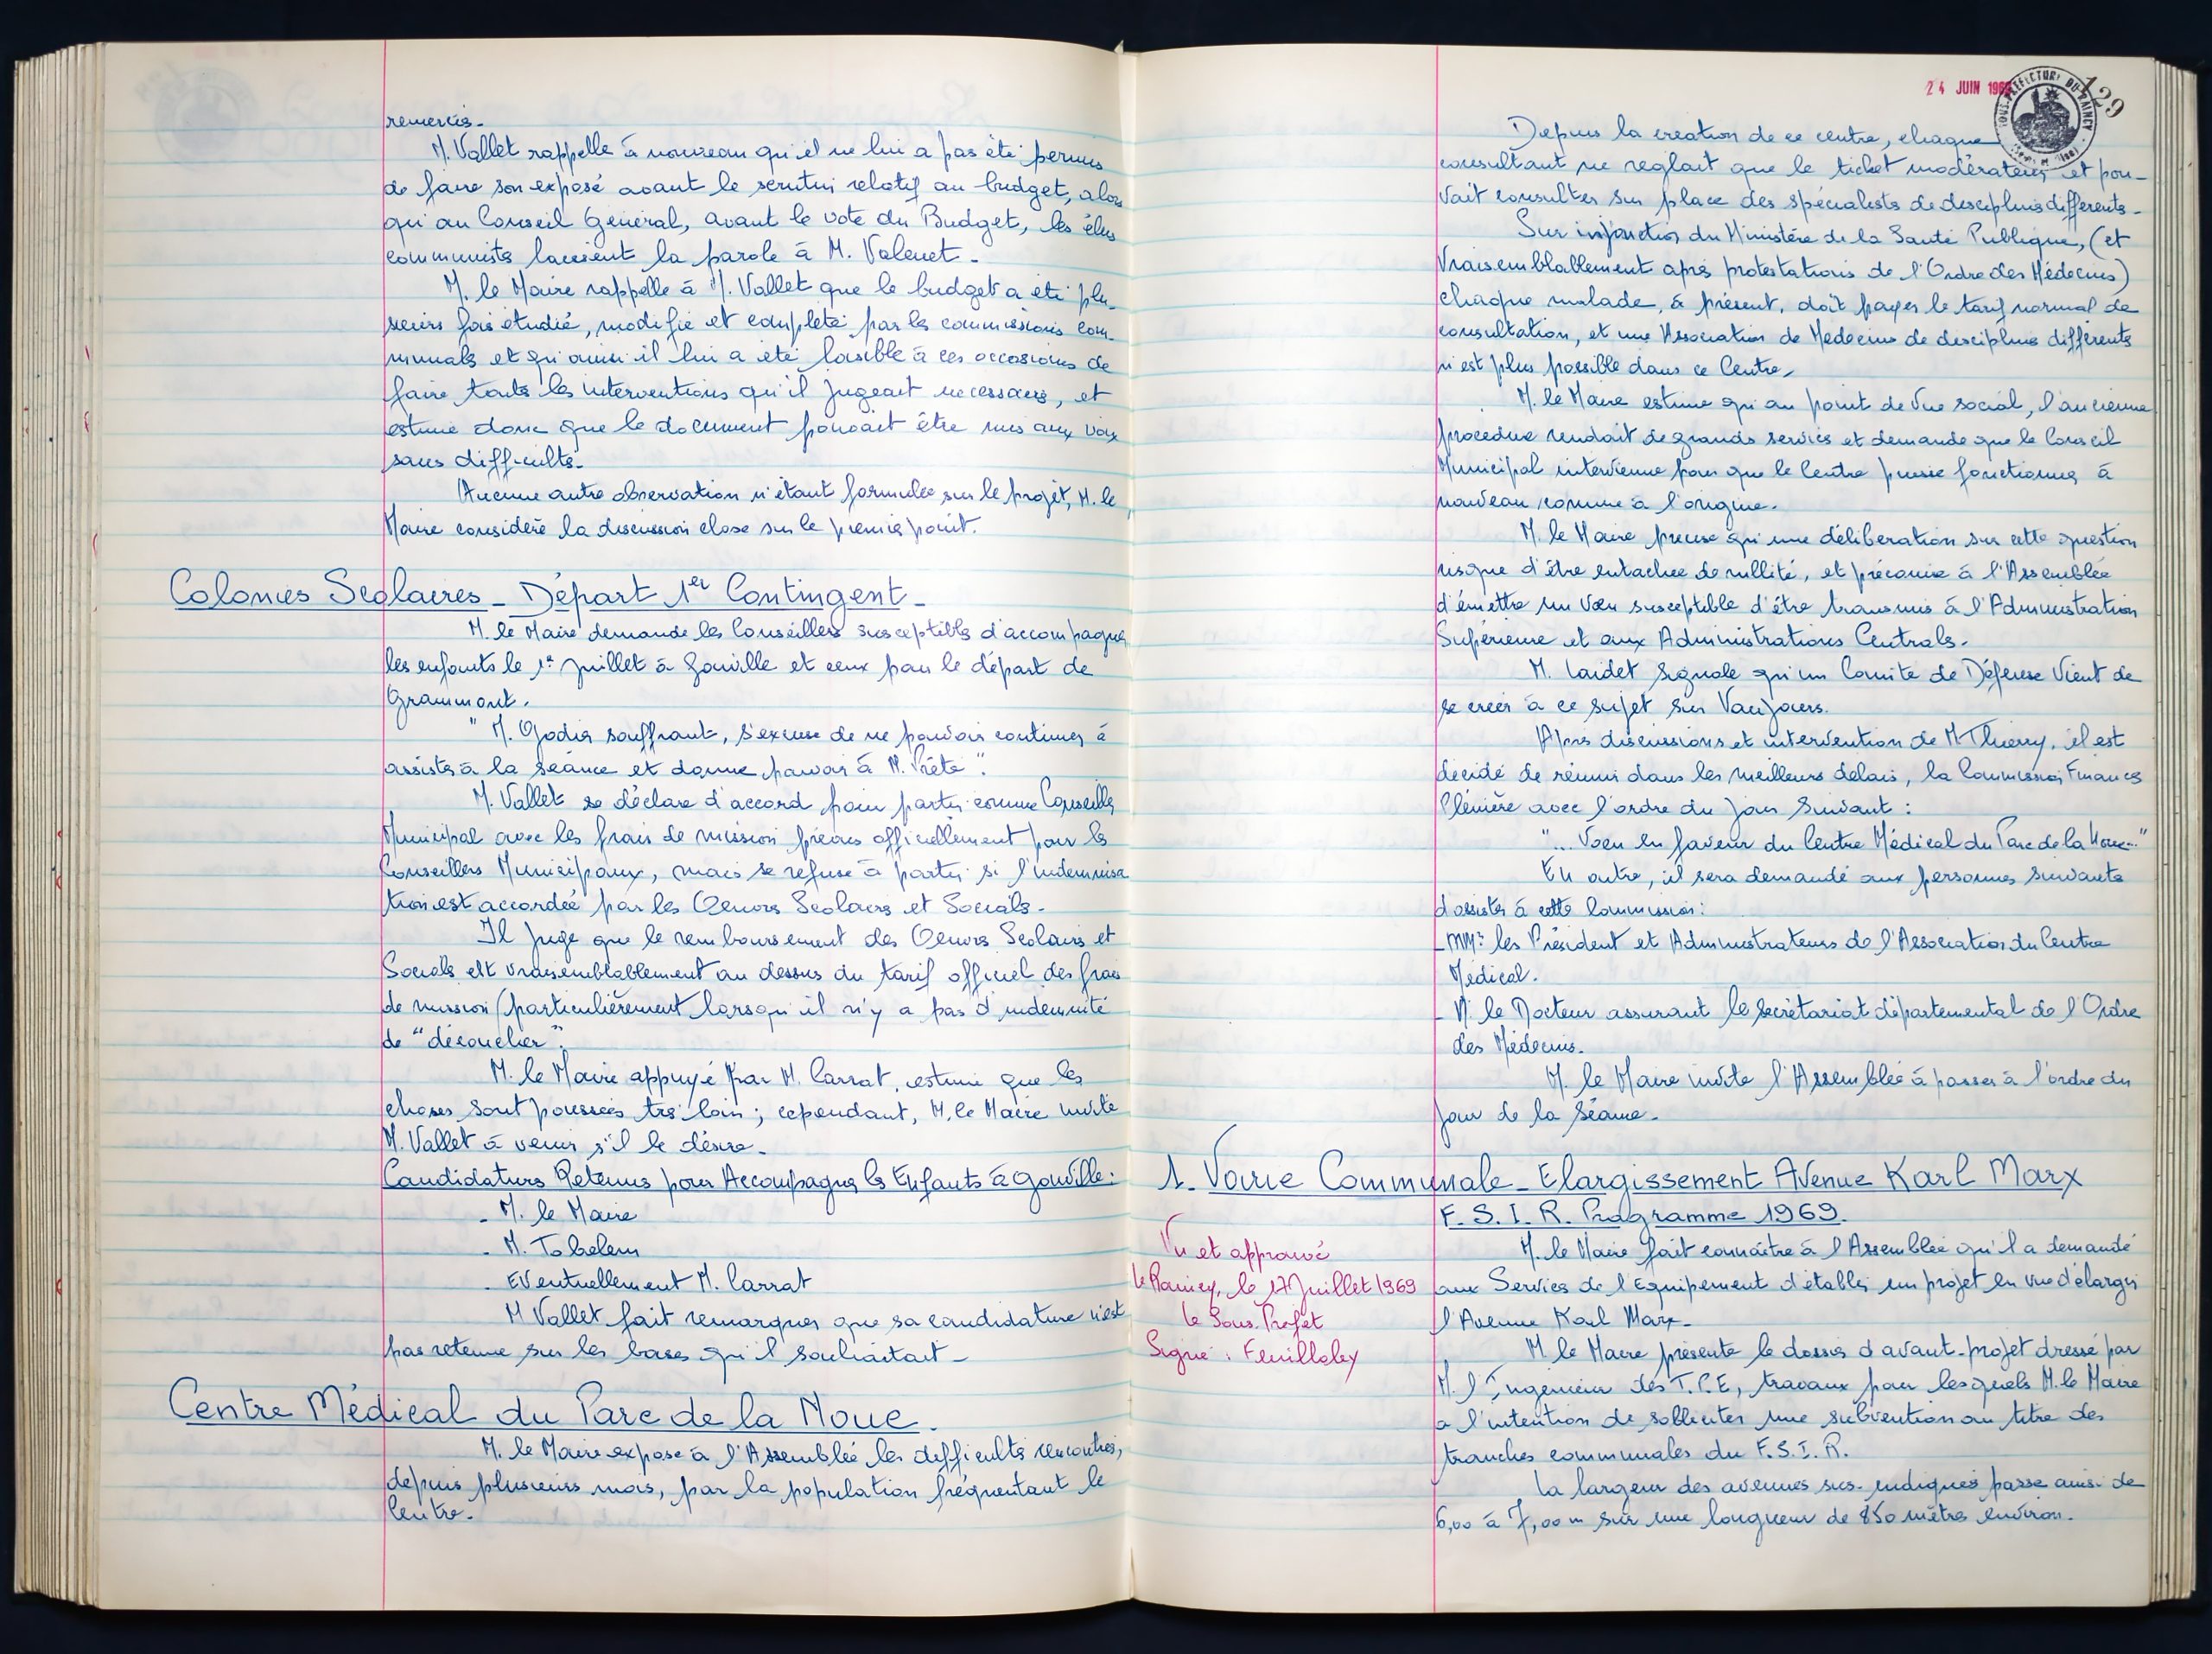 remerciés.
M. Vallet rappelle à nouveau qu'il ne lui a pas été permis
de faire son exposé avant le scrutin relatif au budget, alors
qu'au Conseil Général, avant le vote du Budget, les élus
communistes laissent la parole à M. Valenet.
M. le Maire rappelle à M. Vallet que le budget a été plu-
sieurs fois étudié, modifié et complété par les commissions com-
munales et qu'ainsi il lui a été loisible à ces occasions de
faire toutes les interventions qu'il jugeait nécessaires, et
estime donc que le document pouvait être mis aux voix
sans difficultés.
Aucune autre observation n'étant formulée sur le projet, M. le
Maire considère la discussion close sur le premier point.
Colonies Scolaires - Départ 1er Contingent -
M. le Maire demande les Conseillers susceptibles d'accompagner
les enfants le 1er juillet à Gouville et ceux pour le départ de
Grammont.
" M. Godin souffrant, s'excuse de ne pouvoir continuer à
assister à la séance et donne pouvoir à M. Prêté ".
M. Vallet se déclare d'accord pour partir comme Conseiller
Municipal avec les frais de mission prévus officiellement pour les
Conseillers Municipaux, mais se refuse à partir si l'indemnisa
tion est accordée par les Oeuvres Scolaires et Sociales.
Il juge que le remboursement des Oeuvres Scolaires et
Sociales est vraisemblablement au dessus du tarif officiel des frais
de mission (particulièrement lorsqu'il n'y a pas d'indemnité
de "découcher".
M. le Maire appuyé par M. Carrat, estime que les
choses sont poussées très loin ; cependant, M. le Maire invite
M. Vallet à venir s'il le désire.
Candidatures Retenues pour Accompagner les Enfants à Gouville :
- M. le Maire
- M. Tobelem
- Eventuellement M. Carrat
M Vallet fait remarquer que sa candidature n'est
pas retenue sur les bases qu'il souhaitait -
Centre Médical du Parc de la Noue.
M. le Maire expose à l'Assemblée les difficultés rencontrées,
depuis plusieurs mois, par la population fréquentant le
Centre.
24 JUIN
129
SOUS-PREFECTURE DU RAINCY
Depuis la création de ce centre, chaque
consultant ne réglait que le ticket modérateur et pou-
vait consulter sur place des spécialistes de disciplines différentes.
Sur injonction du Ministère de la Santé Publique, (et
vraisemblablement après protestations de l'Ordre des Médecins)
chaque malade, à présent, doit payer le tarif normal de
consultation, et une Association de Médecins de disciplines différentes
n'est plus possible dans ce Centre.
M. le Maire estime qu'au point de vue social, l'ancienne
procédure rendait de grands services et demande que le Conseil
Municipal intervienne pour que le Centre puisse fonctionner à
nouveau comme à l'origine.
M. le Maire précise qu'une délibération sur cette question
risque d'être entachée de nullité, et préconise à l'Assemblée
d'émettre un Voeu susceptible d'être transmis à l'Administration
Supérieure et aux Administrations Centrales.
M. Laidet signale qu'un Comité de Défense vient de
se créer à ce sujet sur Vaujours.
Après discussions et intervention de M. Thierry, il est
décidé de réunir dans les meilleurs délais, la Commission Finances
Plénière avec l'ordre du jour suivant :
"... Voeu en faveur du Centre Médical du Parc de la Noue..."
En outre, il sera demandé aux personnes suivantes
d'assister à cette Commission :
- MM: les Président et Administrateurs de l'Association du Centre
Médical.
- M. le Docteur assurant le Secrétariat départemental de l'Ordre
des Médecins.
M. le Maire invite l'Assemblée à passer à l'ordre du
jour de la Séance.
1. Voirie Communale - Elargissement Avenue Karl Marx
F. S. I. R. Programme 1969.
Vu et approuvé
Le Raincy, le 17 Juillet 1969
Le Sous-Préfet
Signé : Feuilloley
M. le Maire fait connaître à l'Assemblée qu'il a demandé
aux Services de l'Equipement d'établir un projet en vue d'élargir
l'Avenue Karl Marx.
M. le Maire présente le dossier d'avant-projet dressé par
M. l'Ingénieur des T.P.E, travaux pour lesquels M. le Maire
a l'intention de solliciter une subvention au titre des
tranches communales du F.S.I.R.
La largeur des avenues sus-indiquées passe ainsi de
6,00 à 7,00 m sur une longueur de 850 mètres environ.